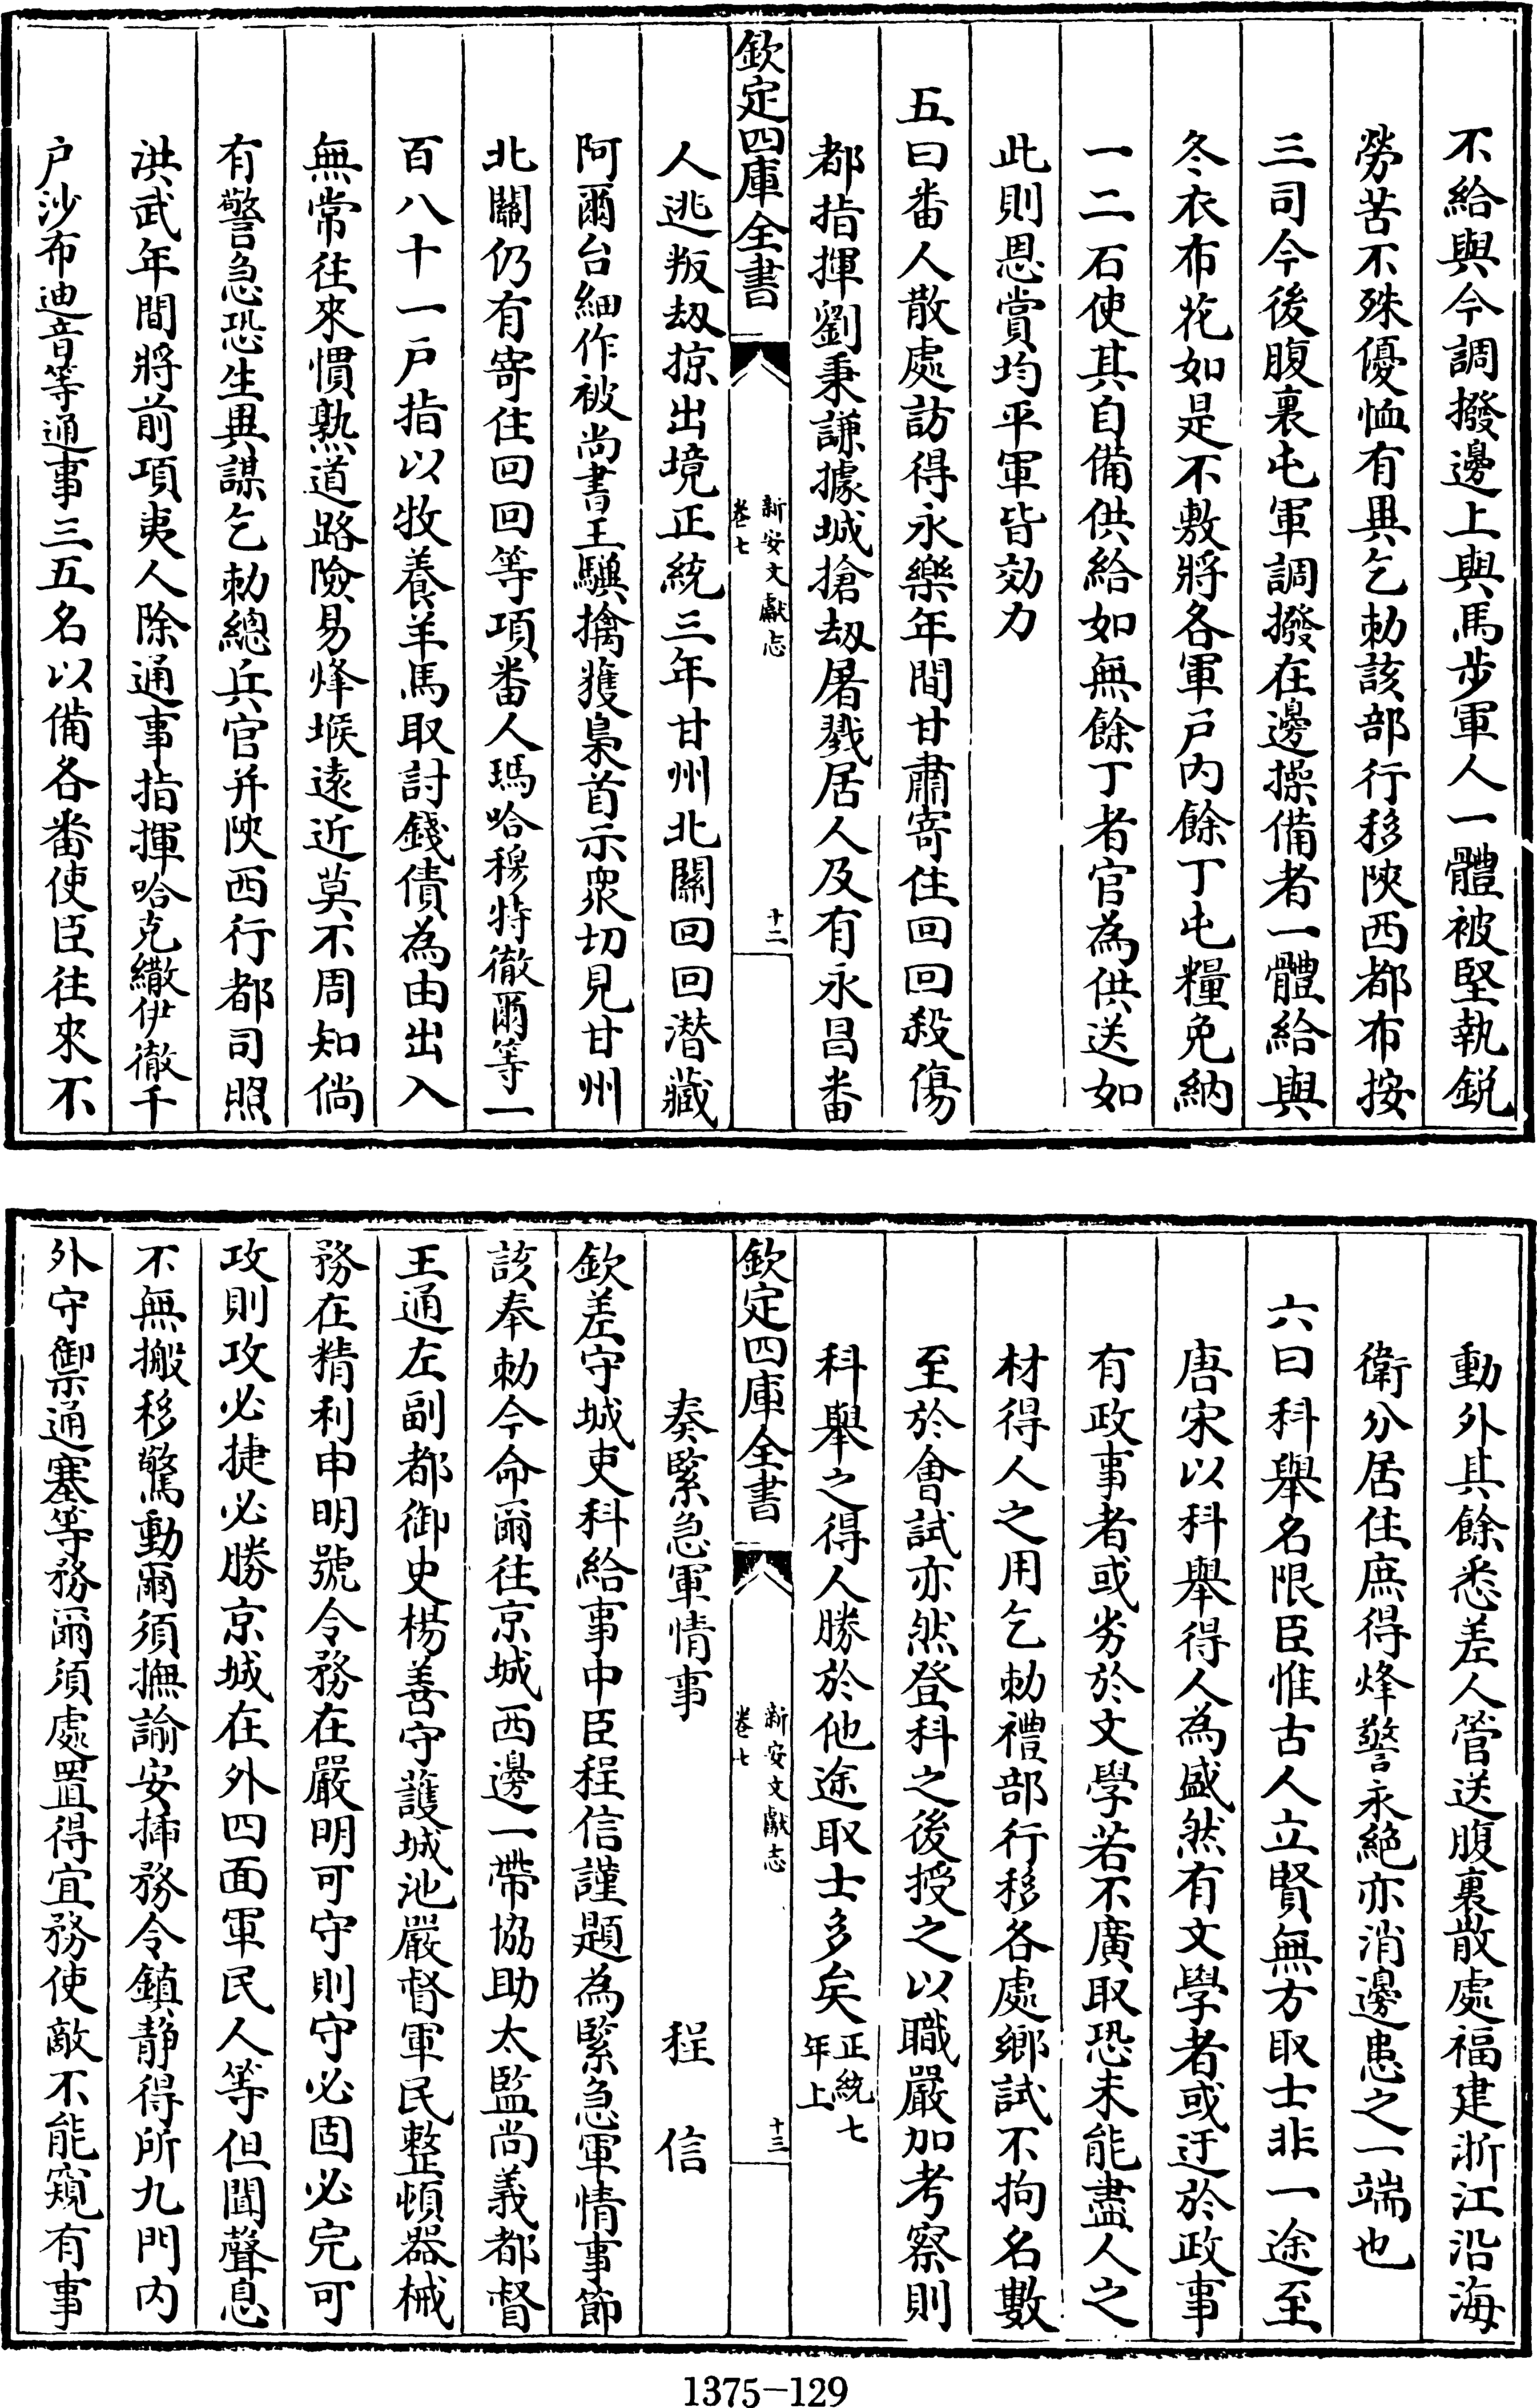 不給與今調撥邊上與馬步軍人一體被堅執銳
勞苦不殊優恤有異乞勅該部行移陜西都布按
三司今後腹裏屯軍調撥在邊操備者一體給與
冬衣布花如是不敷將各軍戶內餘丁屯糧免納
一二石使其自備供給如無餘丁者官為供送如
此則恩賞均平軍皆効力
五曰番人散處訪得永樂年間甘肅寄住回回殺傷
都指揮劉秉謙據城搶刼屠戮居人及有永昌番
欽定四庫全書
新安文獻志
卷七
十二
人逃叛刼掠出境正統三年甘州北關回回潛藏
阿爾台細作被尚書王驥擒獲梟首示衆切見甘州
北關仍有寄住回回等項番人瑪哈穆特徹爾等一
百八十一戶指以牧養羊馬取討錢債為由出入
無常往來慣熟道路險易烽堠遠近莫不周知倘
有警急恐生異謀乞勅總兵官并陜西行都司照
洪武年間將前項夷人除通事指揮哈克繖伊徹千
戶沙布迪音等通事三五名以備各番使臣往來不
動外其餘悉差人管送腹裏散處福建浙江沿海
衛分居住庶得烽警永絕亦消邊患之一端也
六曰科舉名限臣惟古人立賢無方取士非一途至
唐宋以科舉得人為盛然有文學者或迂於政事
有政事者或劣於文學若不廣取恐未能盡人之
材得人之用乞勅禮部行移各處鄉試不拘名數
至於會試亦然登科之後授之以職嚴加考察則
科舉之得人勝於他途取士多矣正統七年上
欽定四庫全書
新安文獻志
卷七
十三
奏緊急軍情事　程信
欽差守城吏科給事中臣程信謹題為緊急軍情事節
該奉勅今命爾往京城西邊一帶協助太監尚義都督
王通左副都御史楊善守護城池嚴督軍民整頓器械
務在精利申明號令務在嚴明可守則守必固必完可
攻則攻必捷必勝京城在外四面軍民人等但聞聲息
不無搬移驚動爾須撫諭安揷務令鎮靜得所九門内
外守禦通塞等務爾須處置得宜務使敵不能窺有事
1375-129